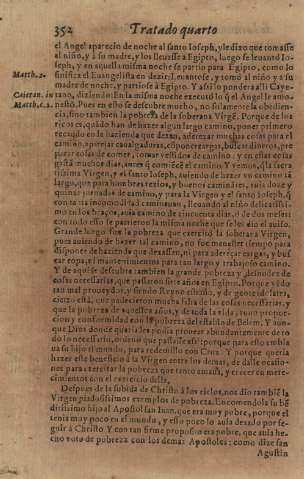 352 Tratado quarto
el Angel aparecio de noche al santo Ioseph, y le dizo que tomasse
al niño, y à su madre, y los lleuasse à Egipto, luego se leuantò Io-
seph, y en aquella misma noche se partio para Egipto, como lo
Matth. 2.
sinifica el Euangelista en dezir: Leuantose, y tomò al niño y à su
madre de noche, y partiose à Egipto. Y assi lo pondera alli Caye-
Caietan. in
Matth. c. 2.
tano, diziendo: En la misma noche executò lo que el Angel le amo-
nestò. Pues en esto se descubre mucho, no solamente la obedien-
cia, sino tambien la pobreza de la soberana Virgē. Porque de los
ricos es, quādo han de hazer algun largo camino, poner primero
recaudo en la hazienda que dexan, adereçar muchas cosas para el
camino, apercebir caualgaduras,
parar cosas de comer, vestidos de camino: y en estas cosas
gastā muchos dias, antes que comiēcē el camino
Virgen, y el santo Ioseph, auiendo de hazer vn camino tā
largo, que para hombres rezios, y buenos caminantes, tiene doze y
quinze jornadas de camino, y para la Virgen y el santo Ioseph,
con tanta incomodidad caminauan, lleuando al niño delicatissi-
mo en los braços, auia camino de cincuenta dias, o de dos meses:
con todo esso se partieron la misma noche que se les dio el auiso.
Grande luego fue la pobreza que exercitò la soberana Virgen,
pues auiendo de hazer tal camino, no fue menester tiempo para
disponer de hazienda que dexassen, ni para adereçar cargas, y bus-
car ropa, ni mantenimientos para tan largo y trabajoso camino.
Y de aqui se descubre tambien la grande pobreza y desnudez de
cosas necessarias, que passaron siete años en Egipto. Porque yēdo
tan mal proueydos, y siendo Reyno estraño, y de gente idolatra,
cierto està, que padecieron mucha falta de las cosas necessarias, y
que la pobreza de aquellos años, y de toda la vida, tuuo propor-
cion y conformidad con la pobreza del establo de Belem. Y aun-
que Dios donde quiera les podia proueer abundantemente de to-
do lo necessario, ordenò que passasse assi: porque para esto embia-
ua su hijo al mundo, para redemillo con Cruz. Y porque queria
hazer este beneficio à la Virgen entre los demas, de dalle ocasio-
nes para exercitar la pobreza que tanto amaua, y crecer en mere-
cimientos con el exercicio della.
Despues de la subida de Christo à los cielos, nos dio tambiē la
Virgen piadosissimos exemplos de pobreza. Encomendola su bē-
ditissimo hijo al Apostol san Iuan, que era muy pobre, porque el
tenia muy poco en el mundo, y esso poco lo auia dexado por se-
guir à Christo. Y con tan firme proposito era pobre, que auia he-
cho voto de pobreza con los demas Apostoles: como dize san
Agustin